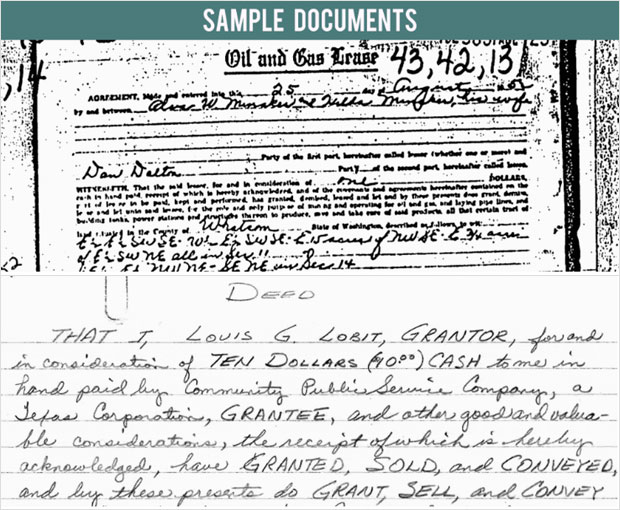 SAMPLE DOCUMENTS
Oil and Gas Lease 43,42,13
14
AGREEMENT, Made and entered into this 25 day of August
by and between W. Minaker and Hilda Minaker, his wife
Party of the first part, hereinafter called lessor (whether one or more) and
Dan Dalton Party of the second part, hereinafter called lessee.
WITNESSETH, That the said lessor, for and in consideration of One DOLLARS,
cash in hand paid, receipt of which is hereby acknowledged, and of the covenants and agreements hereinafter contained on the
part of lessee to be paid, kept and performed, has granted, demised, leased and let and by these presents does grant, demise,
lease and let unto said lessee, for the sole and only purpose of mining and operating for oil and gas, and laying pipe lines, and
building tanks, power stations and structures thereon to produce, save and take care of said products, all that certain tract of
land situated in the County of Whatcom State of Washington, described as follows, to-wit:
E½ E½ SW SE W½ E½ SW SE E
of E½ SW NE all in Sec. 11
SE NE in Sec. 14
DEED
THAT I, LOUIS G. LOBIT, GRANTOR, for and
in consideration of TEN DOLLARS ($10.00) CASH to me in
hand paid by Community Public Service Company, a
Texas Corporation, GRANTEE, and other good and valua-
ble considerations, the receipt of which is hereby
acknowledged, have GRANTED, SOLD, and CONVEYED,
and by these presents do GRANT, SELL, and CONVEY